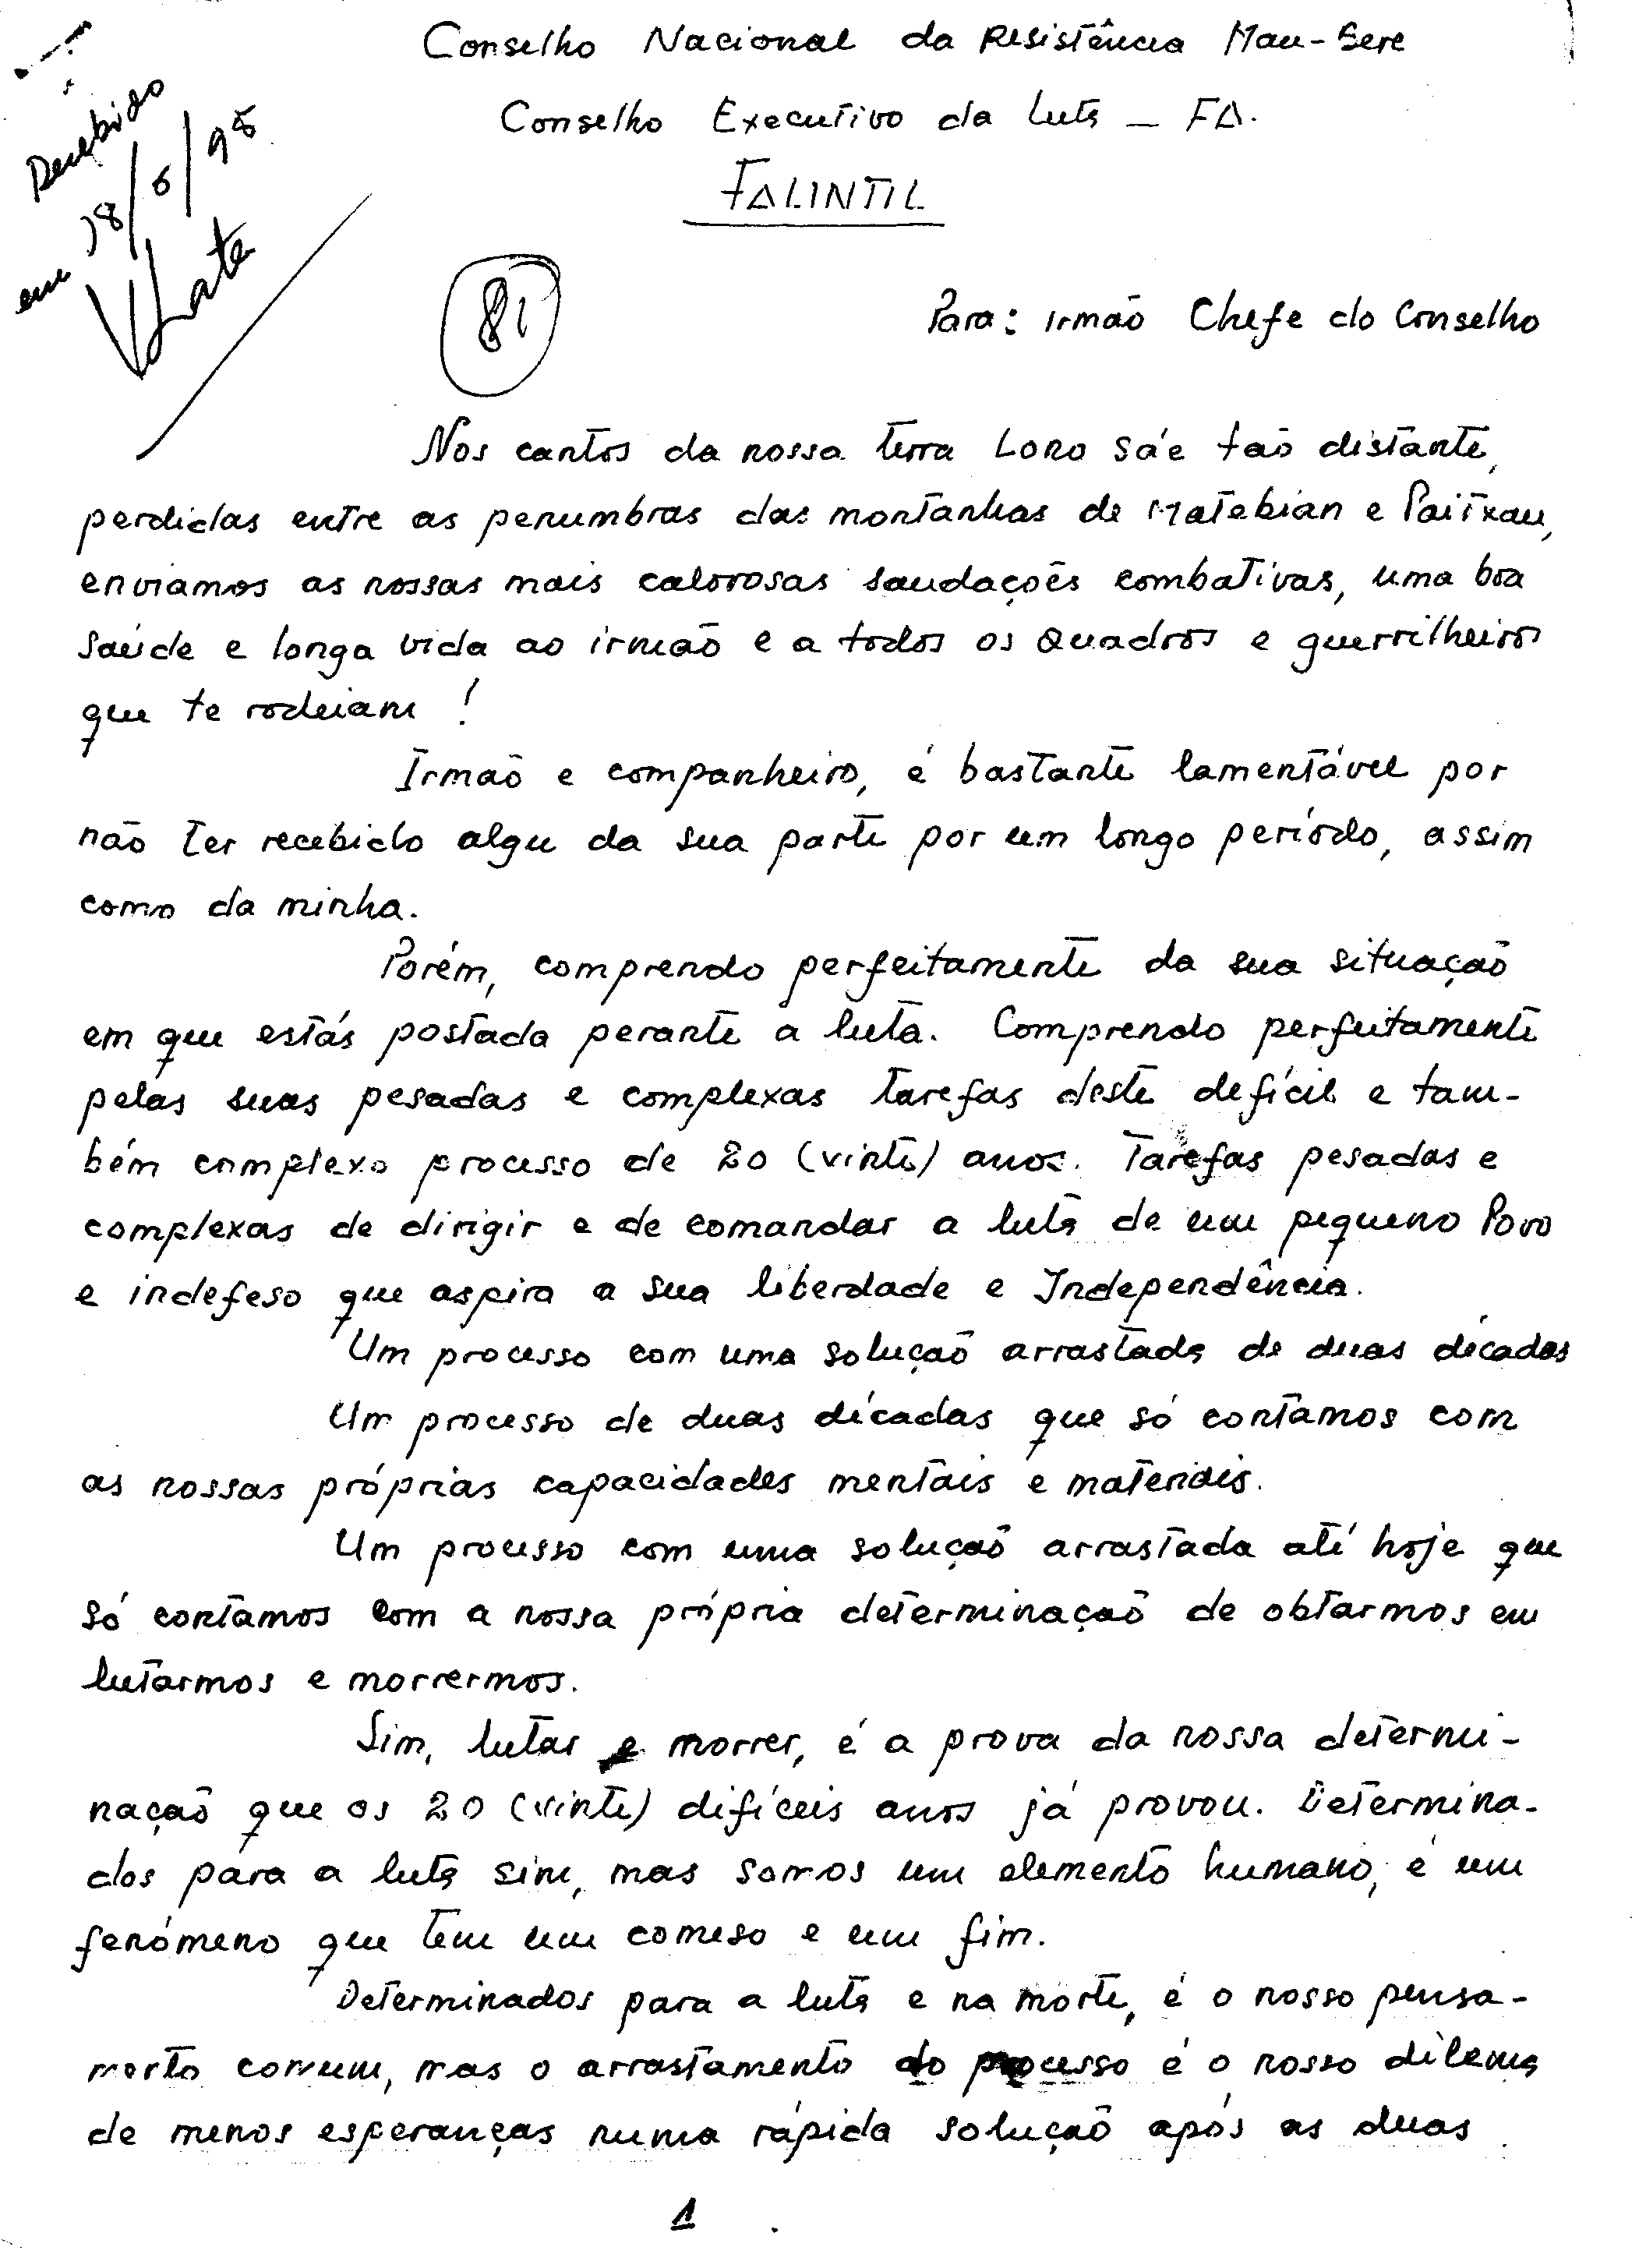 Conselho Nacional da Resistência Mau-Bere
Conselho Executivo da Luta — FA.
FALINTIL
Recebido
em 18/6/95
81
Para: irmão Chefe do Conselho
Nos cantos da nossa terra Loro Sá'e tão distante,
perdidas entre as penumbras das montanhas de Matebian e Paitxau,
enviamos as nossas mais calorosas saudações combativas, uma boa
saúde e longa vida ao irmão e a todos os Quadros e guerrilheiros
que te rodeiam !
Irmão e companheiro, é bastante lamentável por
não ter recebido algu da sua parte por um longo período, assim
como da minha.
Porém, comprendo perfeitamente da sua situação
em que estás postada perante a luta. Comprendo perfeitamente
pelas suas pesadas e complexas tarefas deste defícil e tam-
bém complexo processo de 20 (vinte) anos. Tarefas pesadas e
complexas de dirigir e de comandar a luta de um pequeno Povo
e indefeso que aspira a sua liberdade e Independência.
Um processo com uma solução arrastada de duas décadas
Um processo de duas décadas que só contamos com
as nossas próprias capacidades mentais e materiais.
Um processo com uma solução arrastada até hoje que
só contamos com a nossa própria determinação de obtarmos em
lutarmos e morrermos.
Sim, lutar e morrer, é a prova da nossa determi-
nação que os 20 (vinte) difíceis anos já provou. Determina-
dos para a luta sim, mas somos um elemento humano, é um
fenómeno que tem um comeso e um fim.
Determinados para a luta e na morte, é o nosso pensa-
mento comum, mas o arrastamento do processo é o nosso dilema
de menos esperanças numa rápida solução após as duas
1